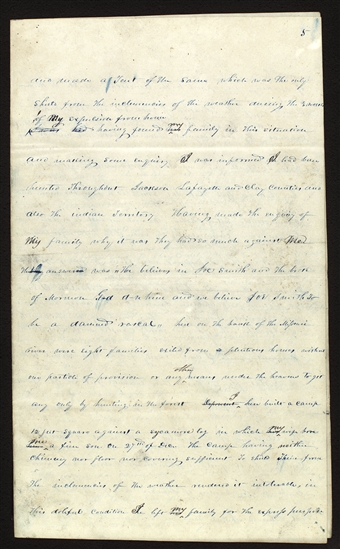 5
and made a Tent of the same which was the only
shelter from the inclemencies of the weather during the
of My expulsion from home
having found my family in this situation
and making some enquiry I was informed I had been
hunted throughout Jackson Lafayette and Clay Counties and
also the indian Territory. Having made the enquiry of
My family why it was they had so much against Me
The answer was he believes in Joe Smith and the Book
of Mormon God d—n him and we believe Joe Smith to
be a damned rascal. here on the bank of the Missouri
river were eight families exited from plenteous homes without
one particle of provision or any other means under the heavens to get
any only by hunting in the forest I here built a camp
12 feet square against a sycamore log in which my wife bore
me a fine son on 27th of Dec The Camp having neither
chimney nor floor nor covering sufficient to shield from
the inclemencies of the weather rendered it intolerable, in
this doleful condition I left my family for the express purpose